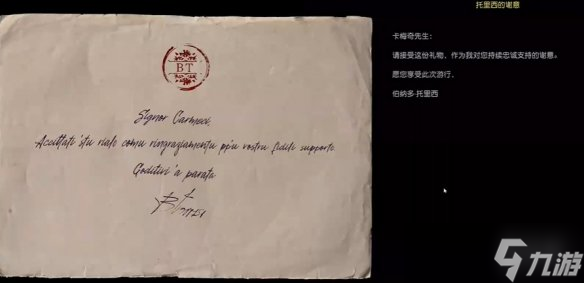 托里西的谢意
BT
Signor Carmeci,
Accittati 'stu rialu comu ringraziamentu ppu vostru fidili supporto.
Goditivi 'a parata
卡梅奇先生：
请接受这份礼物，作为我对您持续忠诚支持的谢意。
愿您享受此次游行，
伯纳多·托里西
九游